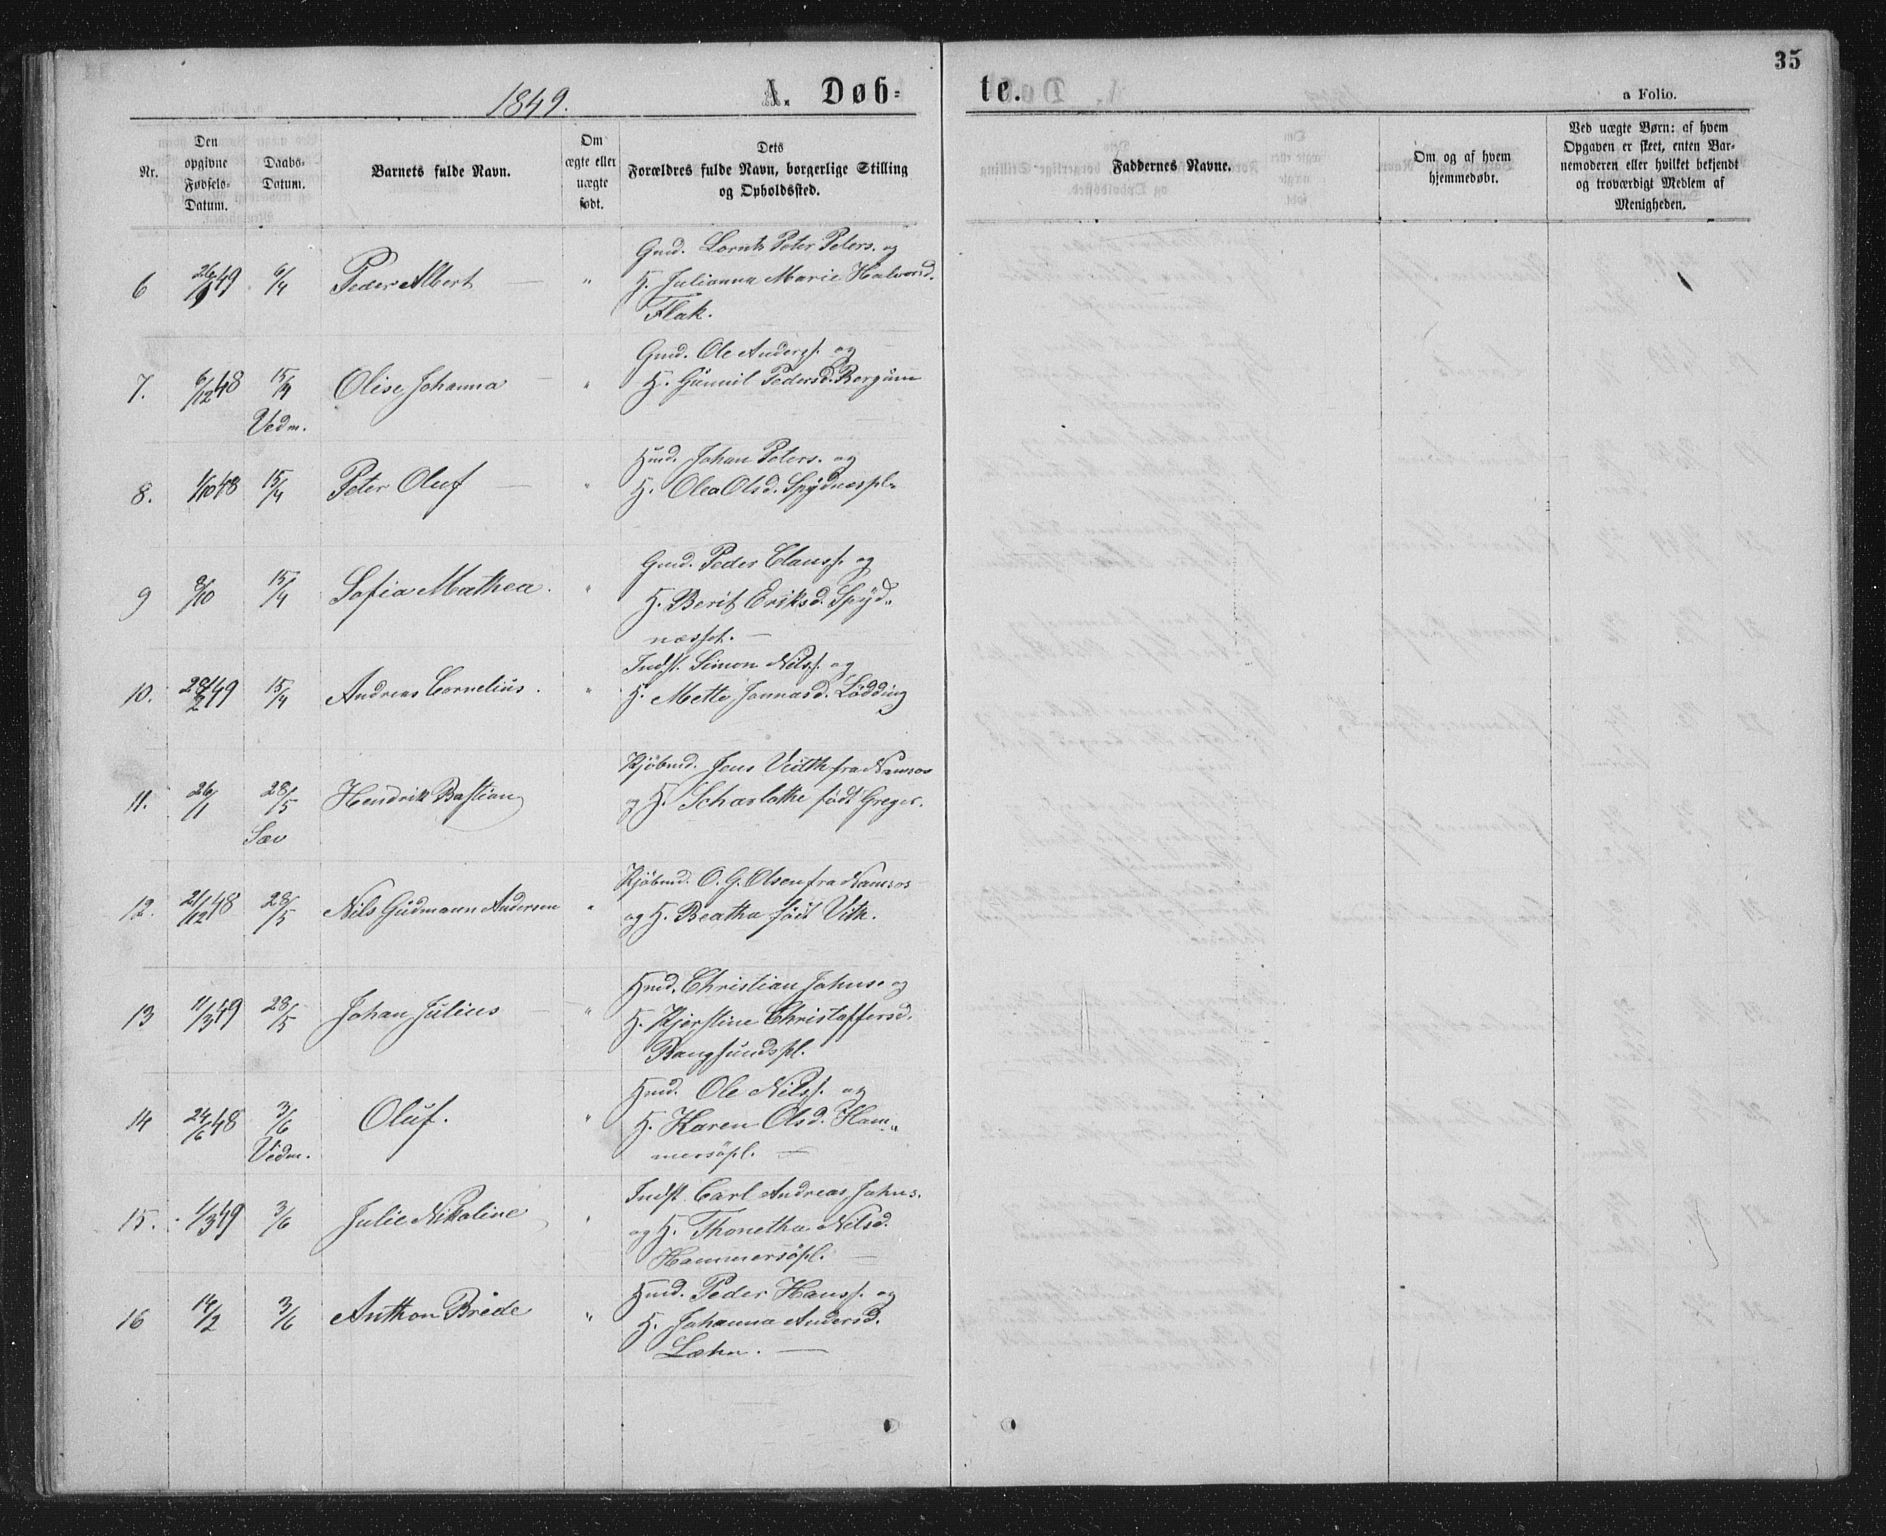 35
1849.
A. Døb-
te.
a Folio.
Nr.
Den opgivne Fødsels-Datum.
Daabs-Datum.
Barnets fulde Navn.
Om ægte eller uægte født.
Dets Forældres fulde Navn, borgerlige Stilling og Opholdssted.
Faddernes Navne.
Om og af hvem hjemmedøbt.
Ved uægte Børn: af hvem Opgaven er skeet, enten Barnemoderen eller hvilket bekjendt og troværdigt Medlem af Menigheden.
6 26/1 49 6/4 Peder Albert — " Gmd. Lornts Peter Peters. og
H. Julianna Marie Halvorsd.
Flak.
7. 6/12 48 15/4 Olise Johanna — " Gmd. Ole Anderss. og
Vedm. H. Gunnil Pedersd. Bergum
8. 1/10 48 15/4 Peter Oluf — " Hmd. Johan Peters. og
H. Olea Olsd. Spydnespl.
9 8/10 15/4 Sofia Mathea. " Gmd. Peder Clauss. og
H. Berit Eriksd. Spyd-
nesset. —
10. 28/2 49 15/4 Andreas Cornelius. " Indst. Simon Nilss. og
H. Mette Jonnasd. Lødding
11. 26/1 28/5 Hendrik Bastian Kjøbmd. Jens Veidth fra Namsos
Sæv og H. Scharlothe født Greger.
12. 21/12 48 28/5 Nils Gudmann Andersen " Kjøbmd. O. G. Olsen fra Namsos
og H. Beatha født Vith.
13 11/3 49 28/5 Johan Julius — " Hmd. Christian Johns. og
H. Kjerstine Christaffersd.
Bangsundspl.
14 24/6 48 3/6 Oluf. " Hmd. Ole Nilss. og
Vedm. H. Karen Olsd. Ham-
mersøpl. —
15. 1/3 49 3/6 Julie Nikoline " Indst. Carl Andreas Johns.
og H. Thonetha Nilsd.
Hammersøpl. —
16 14/2 3/6 Anthon Brede " Hmd. Peder Hanss. og
H. Johanna Andersd.
Læhn. —